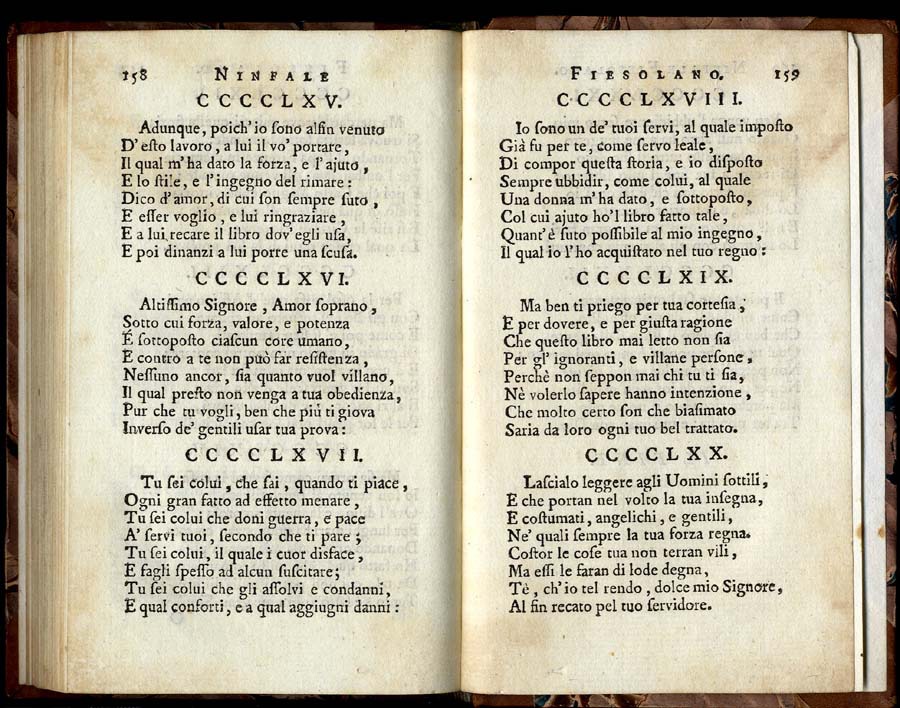 158 NINFALE
CCCCLXV.
Adunque, poich' io ſono alfin venuto
D' eſto lavoro, a lui il vo' portare,
Il qual m' ha dato la forza, e l' ajuto,
E lo ſtile, e l' ingegno del rimare:
Dico d' amor, di cui ſon ſempre ſuto,
E eſſer voglio, e lui ringraziare,
E a lui recare il libro dov' egli uſa,
E poi dinanzi a lui porre una ſcuſa.
CCCCLXVI.
Altiſſimo Signore, Amor ſoprano,
Sotto cui forza, valore, e potenza
É ſottopoſto ciaſcun core umano,
E contro a te non può far reſiſtenza,
Neſſuno ancor, ſia quanto vuol villano,
Il qual preſto non venga a tua obedienza,
Pur che tu vogli, ben che più ti giova
Inverſo de' gentili uſar tua prova:
CCCCLXVII.
Tu ſei colui, che fai, quando ti piace,
Ogni gran fatto ad effetto menare,
Tu ſei colui che doni guerra, e pace
A' ſervi tuoi, ſecondo che ti pare;
Tu ſei colui, il quale i cuor disface,
E fagli ſpeſſo ad alcun ſuſcitare;
Tu ſei colui che gli aſſolvi e condanni,
E qual conforti, e a qual aggiugni danni:
FIESOLANO. 159
CCCCLXVIII.
Io ſono un de' tuoi ſervi, al quale impoſto
Già fu per te, come ſervo leale,
Di compor queſta ſtoria, e io diſpoſto
Sempre ubbidir, come colui, al quale
Una donna m' ha dato, e ſottopoſto,
Col cui ajuto ho'l libro fatto tale,
Quant' è ſuto poſſibile al mio ingegno,
Il qual io l' ho acquiſtato nel tuo regno:
CCCCLXIX.
Ma ben ti priego per tua corteſia,
E per dovere, e per giuſta ragione
Che queſto libro mai letto non ſia
Per gl' ignoranti, e villane perſone,
Perchè non ſeppon mai chi tu ti ſia,
Nè volerlo ſapere hanno intenzione,
Che molto certo ſon che biaſimato
Saria da loro ogni tuo bel trattato.
CCCCLXX.
Laſcialo leggere agli Uomini ſottili,
E che portan nel volto la tua inſegna,
E coſtumati, angelichi, e gentili,
Ne' quali ſempre la tua forza regna.
Coſtor le coſe tua non terran vili,
Ma eſſi le faran di lode degna,
Tè, ch' io tel rendo, dolce mio Signore,
Al fin recato pel tuo ſervidore.